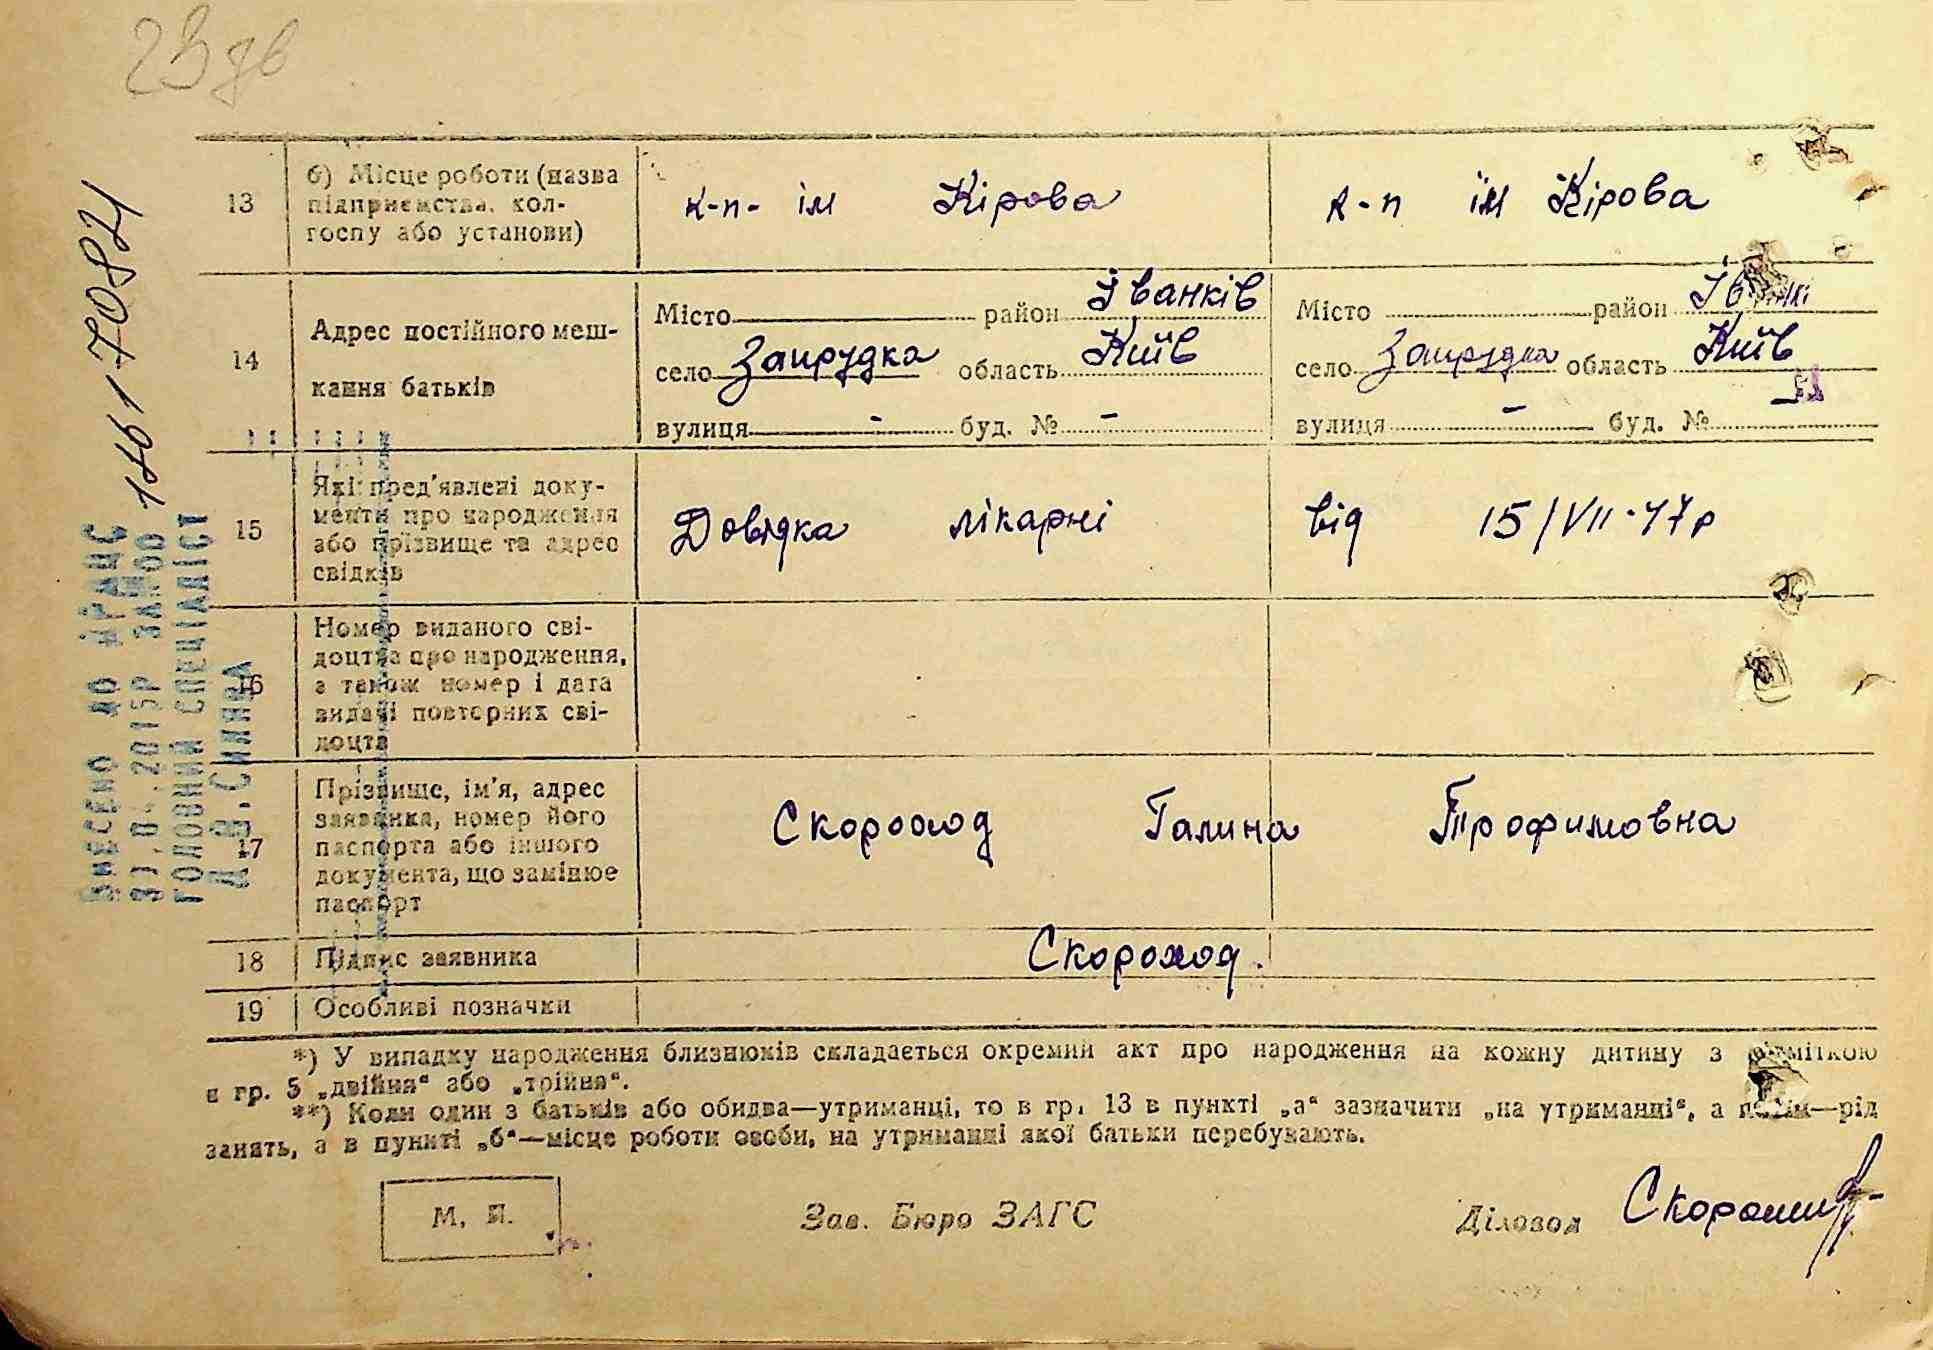 23 зв
13
б) Місце роботи (назва
підприємства, кол-
госпу або установи)
к-п- ім Кірова
к-п ім Кірова
14
Адрес постійного меш-
кання батьків
Місто район Іванків
село Запрудка область Київ
вулиця - буд. № -
Місто район
село Запрудка область Київ
вулиця - буд. №
15
Які пред'явлені доку-
менти про народження
або прізвище та адрес
свідків
Довідка лікарні від 15/VII-47р
16
Номер виданого сві-
доцтва про народження,
а також номер і дата
видачі повторних сві-
доцтв
17
Прізвище, ім'я, адрес
заявника, номер його
паспорта або іншого
документа, що замінює
паспорт
Скороход Галина Трофимовна
18
Підпис заявника
Скороход.
19
Особливі позначки
*) У випадку народження близнюків складається окремий акт про народження на кожну дитину з відміткою
в гр. 5 „двійня“ або „трійня“.
**) Коли один з батьків або обидва—утриманці, то в гр. 13 в пункті „а“ зазначити „на утриманні“, а потім—рід
занять, а в пункті „б“—місце роботи особи, на утриманні якої батьки перебувають.
М. П.
Зав. Бюро ЗАГС
Діловод
Внесено до ДРАЦС
ГОЛОВНИЙ СПЕЦІАЛІСТ